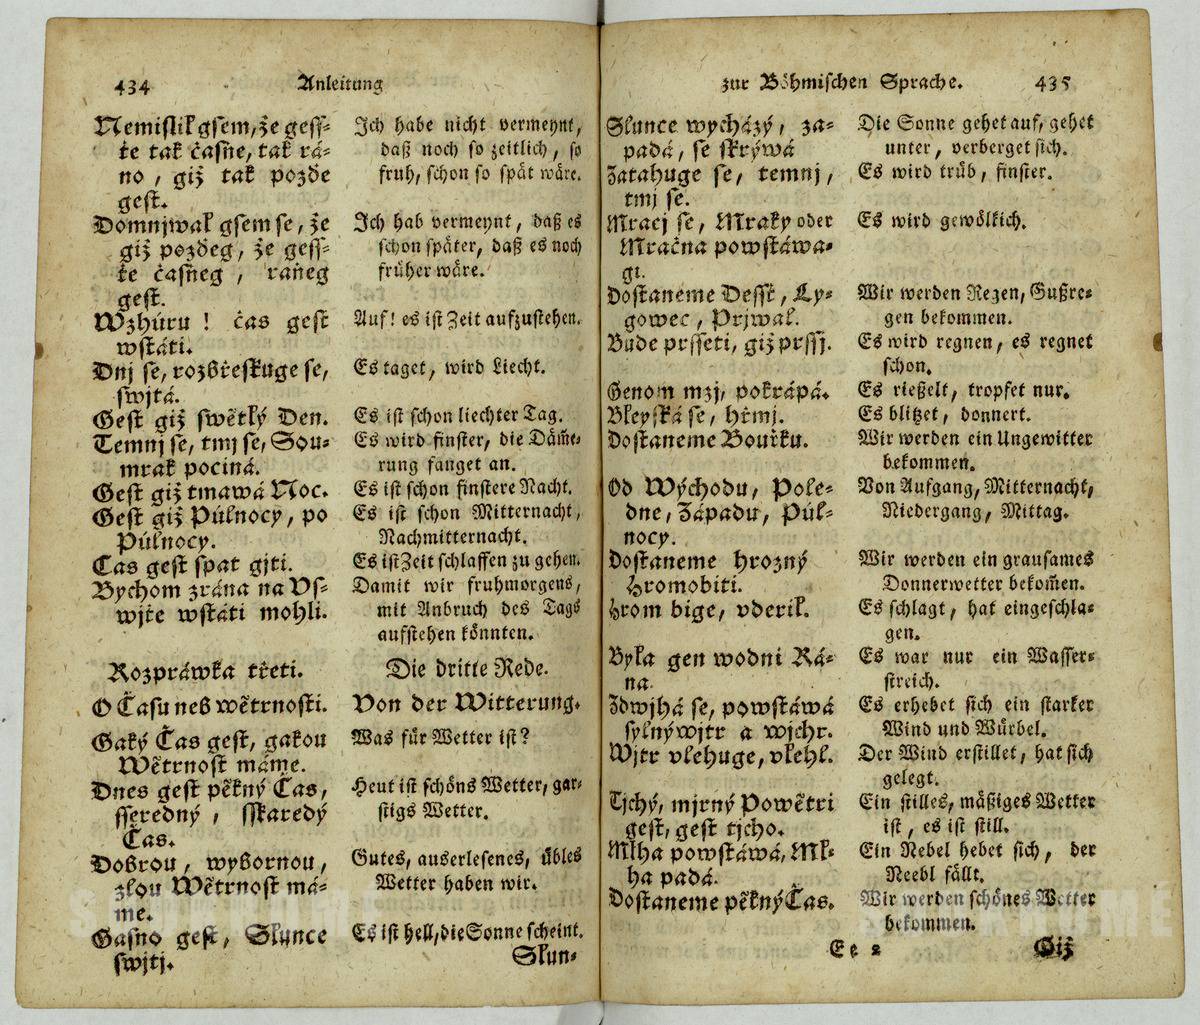 434 Anleitung
Nemislil gsem, že gess-
tě tak časne, tak rá-
no, giž tak pozdě
gest.
Domnjwal gsem se, že
giž pozdeg, že gess-
tě časneg, raneg
gest.
Wzhůru! čas gest
wstáti.
Dnj se, rozbřeskuge se,
swjtá.
Gest giž swětlý Den.
Temnj se, tmj se, Sou-
mrak pociná.
Gest giž tmawá Noc.
Gest giž Půlnocy, po
Půlnocy.
Cas gest spat gjti.
Bychom zrána na Vs-
wjtě wstáti mohli.
Rozpráwka třeti.
O Času neb wětrnosti.
Gaký Čas gest, gakou
Wětrnost máme.
Dnes gest pěkný Čas,
sseredný, sskaredý
Čas.
Dobrou, wybornou,
zlou Wětrnost má-
me.
Gasno gest, Slunce
swjtj.
Ich habe nicht vermeynt,
daß noch so zeitlich, so
fruh, schon so spät wäre.
Ich hab vermeynt, daß es
schon später, daß es noch
früher wäre.
Auf! es ist Zeit aufzustehen.
Es taget, wird Liecht.
Es ist schon liechter Tag.
Es wird finster, die Däm̃e-
rung fanget an.
Es ist schon finstere Nacht.
Es ist schon Mitternacht,
Nachmitternacht.
Es ist Zeit schlaffen zu gehen.
Damit wir fruhmorgens,
mit Anbruch des Tags
aufstehen könnten.
Die dritte Rede.
Von der Witterung.
Was für Wetter ist?
Heut ist schöns Wetter, gar-
stigs Wetter.
Gutes, auserlesenes, übles
Wetter haben wir.
Es ist hell, die Sonne scheint.
Slun-
zur Böhmischen Sprache. 435
Slunce wycházý, za-
padá, se skrýwá
Zatahuge se, temnj,
tmj se.
Mracj se, Mraky oder
Mračna powstáwa-
gi.
Dostaneme Dessť, Ly-
gowec, Prjwal.
Bude prsseti, giž prssj.
Genom mzj, pokrápá.
Bleyská se, hřmj.
Dostaneme Bouřku.
Od Wýchodu, Pole-
dne, Západu, Půl-
nocy.
Dostaneme hrozný
Hromobiti.
Hrom bige, vderil.
Byla gen wodni Rá-
na.
Zdwjhá se, powstáwá
sylný wjtr a wjchr.
Wjtr vlehuge, vlehl.
Tjchý, mjrný Powětri
gest, gest tjcho.
Mlha powstáwá, Ml-
ha padá.
Dostaneme pěkný Čas.
Die Sonne gehet auf, gehet
unter, verberget sich.
Es wird trüb, finster.
Es wird gewölkich.
Wir werden Regen, Gußre-
gen bekommen.
Es wird regnen, es regnet
schon.
Es rießelt, tropfet nur.
Es blitzet, donnert.
Wir werden ein Ungewitter
bekommen.
Von Aufgang, Mitternacht,
Niedergang, Mittag.
Wir werden ein grausames
Donnerwetter bekom̃en.
Es schlagt, hat eingeschla-
gen.
Es war nur ein Wasser-
streich.
Es erhebet sich ein starker
Wind und Würbel.
Der Wind erstillet, hat sich
gelegt.
Ein stilles, mäßiges Wetter
ist, es ist still.
Ein Nebel hebet sich, der
Neebl fällt.
Wir werden schönes Wetter
bekommen.
Ee 2 Giž